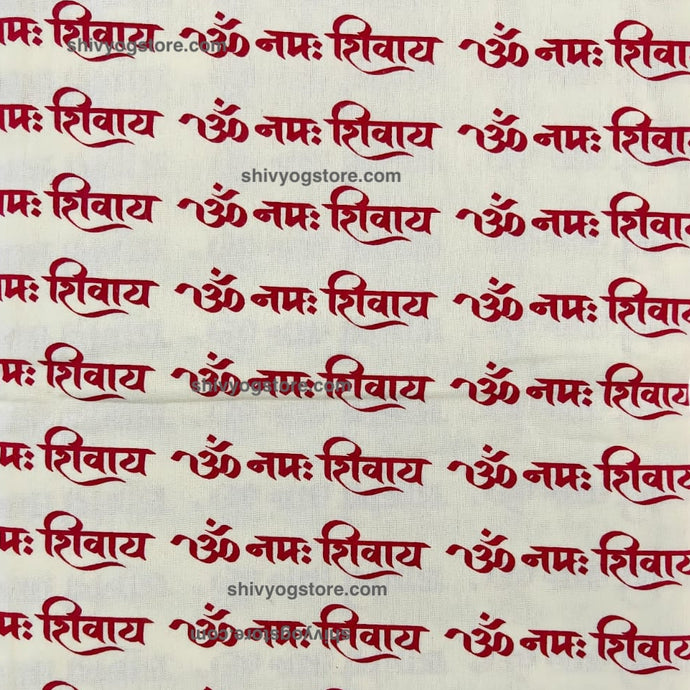 नमः शिवाय ॐ नमः शिवाय ॐ नमः शिवाय
shivyogstore.com
नमः शिवाय ॐ नमः शिवाय ॐ नमः शिवाय
shivyogstore.com
नमः शिवाय ॐ नमः शिवाय ॐ नमः शिवाय
नमः शिवाय ॐ नमः शिवाय ॐ नमः शिवाय
shivyogstore.com
नमः शिवाय ॐ नमः शिवाय ॐ नमः शिवाय
नमः शिवाय ॐ नमः शिवाय ॐ नमः शिवाय
नमः शिवाय ॐ नमः शिवाय ॐ नमः शिवाय
shivyogstore.com
नमः शिवाय ॐ नमः शिवाय ॐ नमः शिवाय
shivyogstore.com